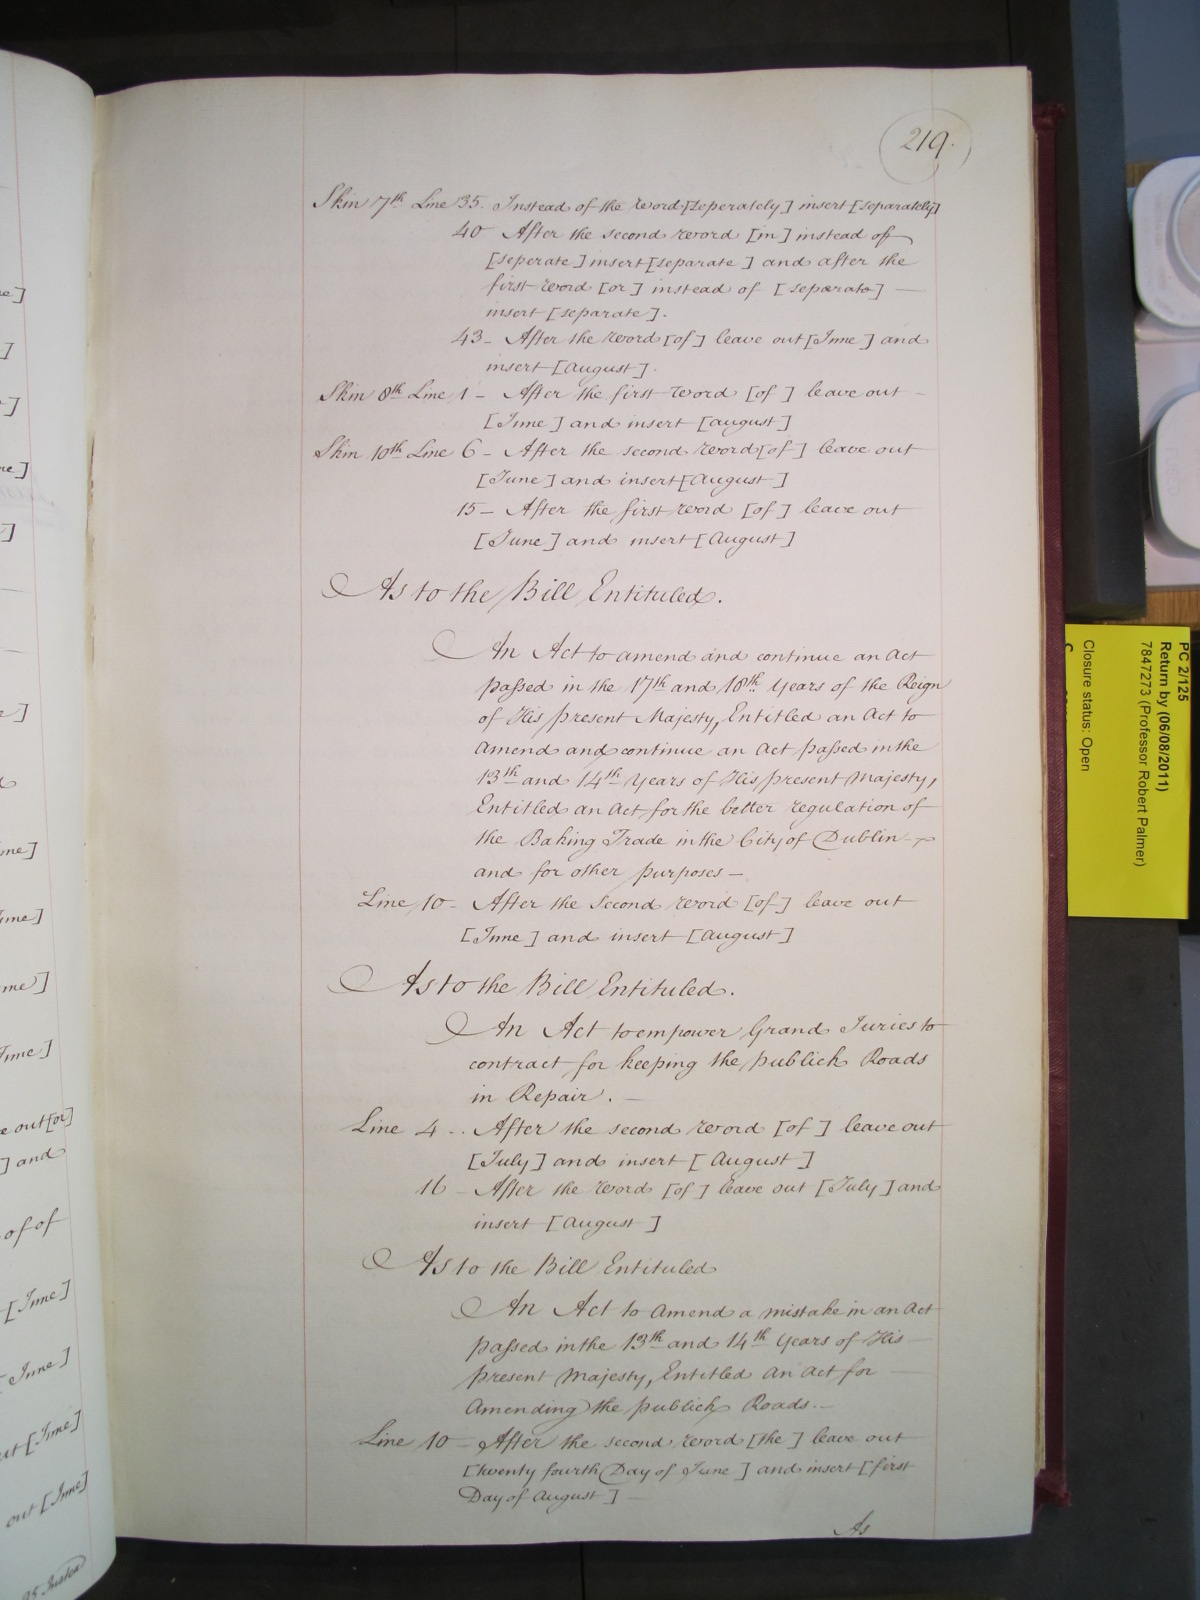 219.
Skin 7th Line 35. Instead of the word [seperately] insert [separately]
40 After the second word [in] instead of
[seperate] insert [separate] and after the
first word [or] instead of [separate] —
insert [separate].
43 - After the word [of] leave out [June] and
insert [August].
Skin 8th Line 1 - After the first word [of] leave out -
[June] and insert [August]
Skin 10th Line 6 - After the second word [of] leave out
[June] and insert [August]
15 - After the first word [of] leave out
[June] and insert [August]
As to the Bill Entituled.
An Act to amend and continue an Act
passed in the 17th and 18th Years of the Reign
of His present Majesty, Entitled an Act to
amend and continue an Act passed in the
13th and 14th Years of His present Majesty,
Entitled an Act for the better regulation of
the Baking Trade in the City of Dublin -
and for other purposes —
Line 10 - After the Second word [of] leave out
[June] and insert [August]
As to the Bill Entituled.
An Act to empower Grand Juries to
contract for keeping the publick Roads
in Repair. —
Line 4 - . After the second word [of] leave out
[July] and insert [August]
16 - After the word [of] leave out [July] and
insert [August]
As to the Bill Entituled
An Act to amend a mistake in an Act
passed in the 13th and 14th Years of His —
present Majesty, Entitled an Act for —
Amending the publick Roads. —
Line 10 - After the second word [the] leave out
[twenty fourth Day of June] and insert [first
Day of August] —
As
ne]
]
]
me]
]
]
me]
June]
me]
June]
e out [or]
] and
of of
[June]
June]
out [June]
out [June]
35 Instead
PC 2/125
Return by (06/08/2011)
7847273 (Professor Robert Palmer)
Closure status: Open